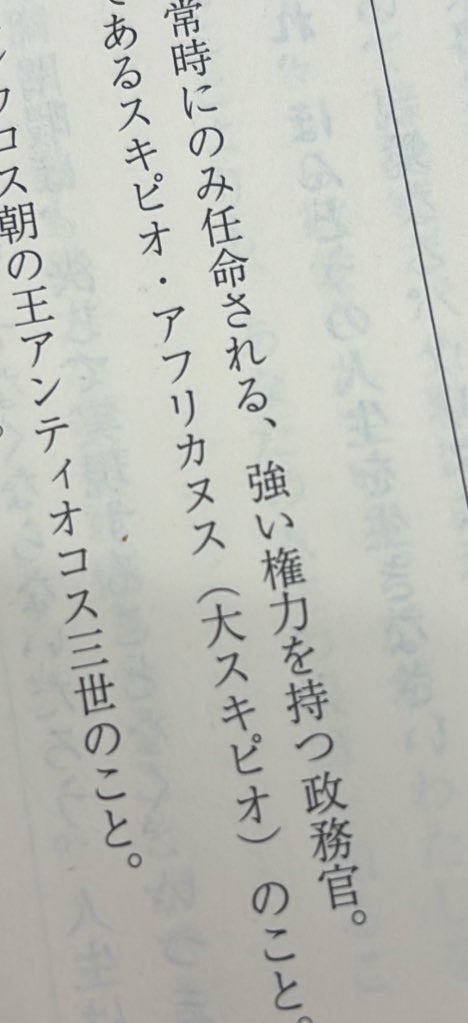 常時にのみ任命される、強い権力を持つ政務官。
であるスキピオ・アフリカヌス（大スキピオ）のこと。
コス朝の王アンティオコス三世のこと。